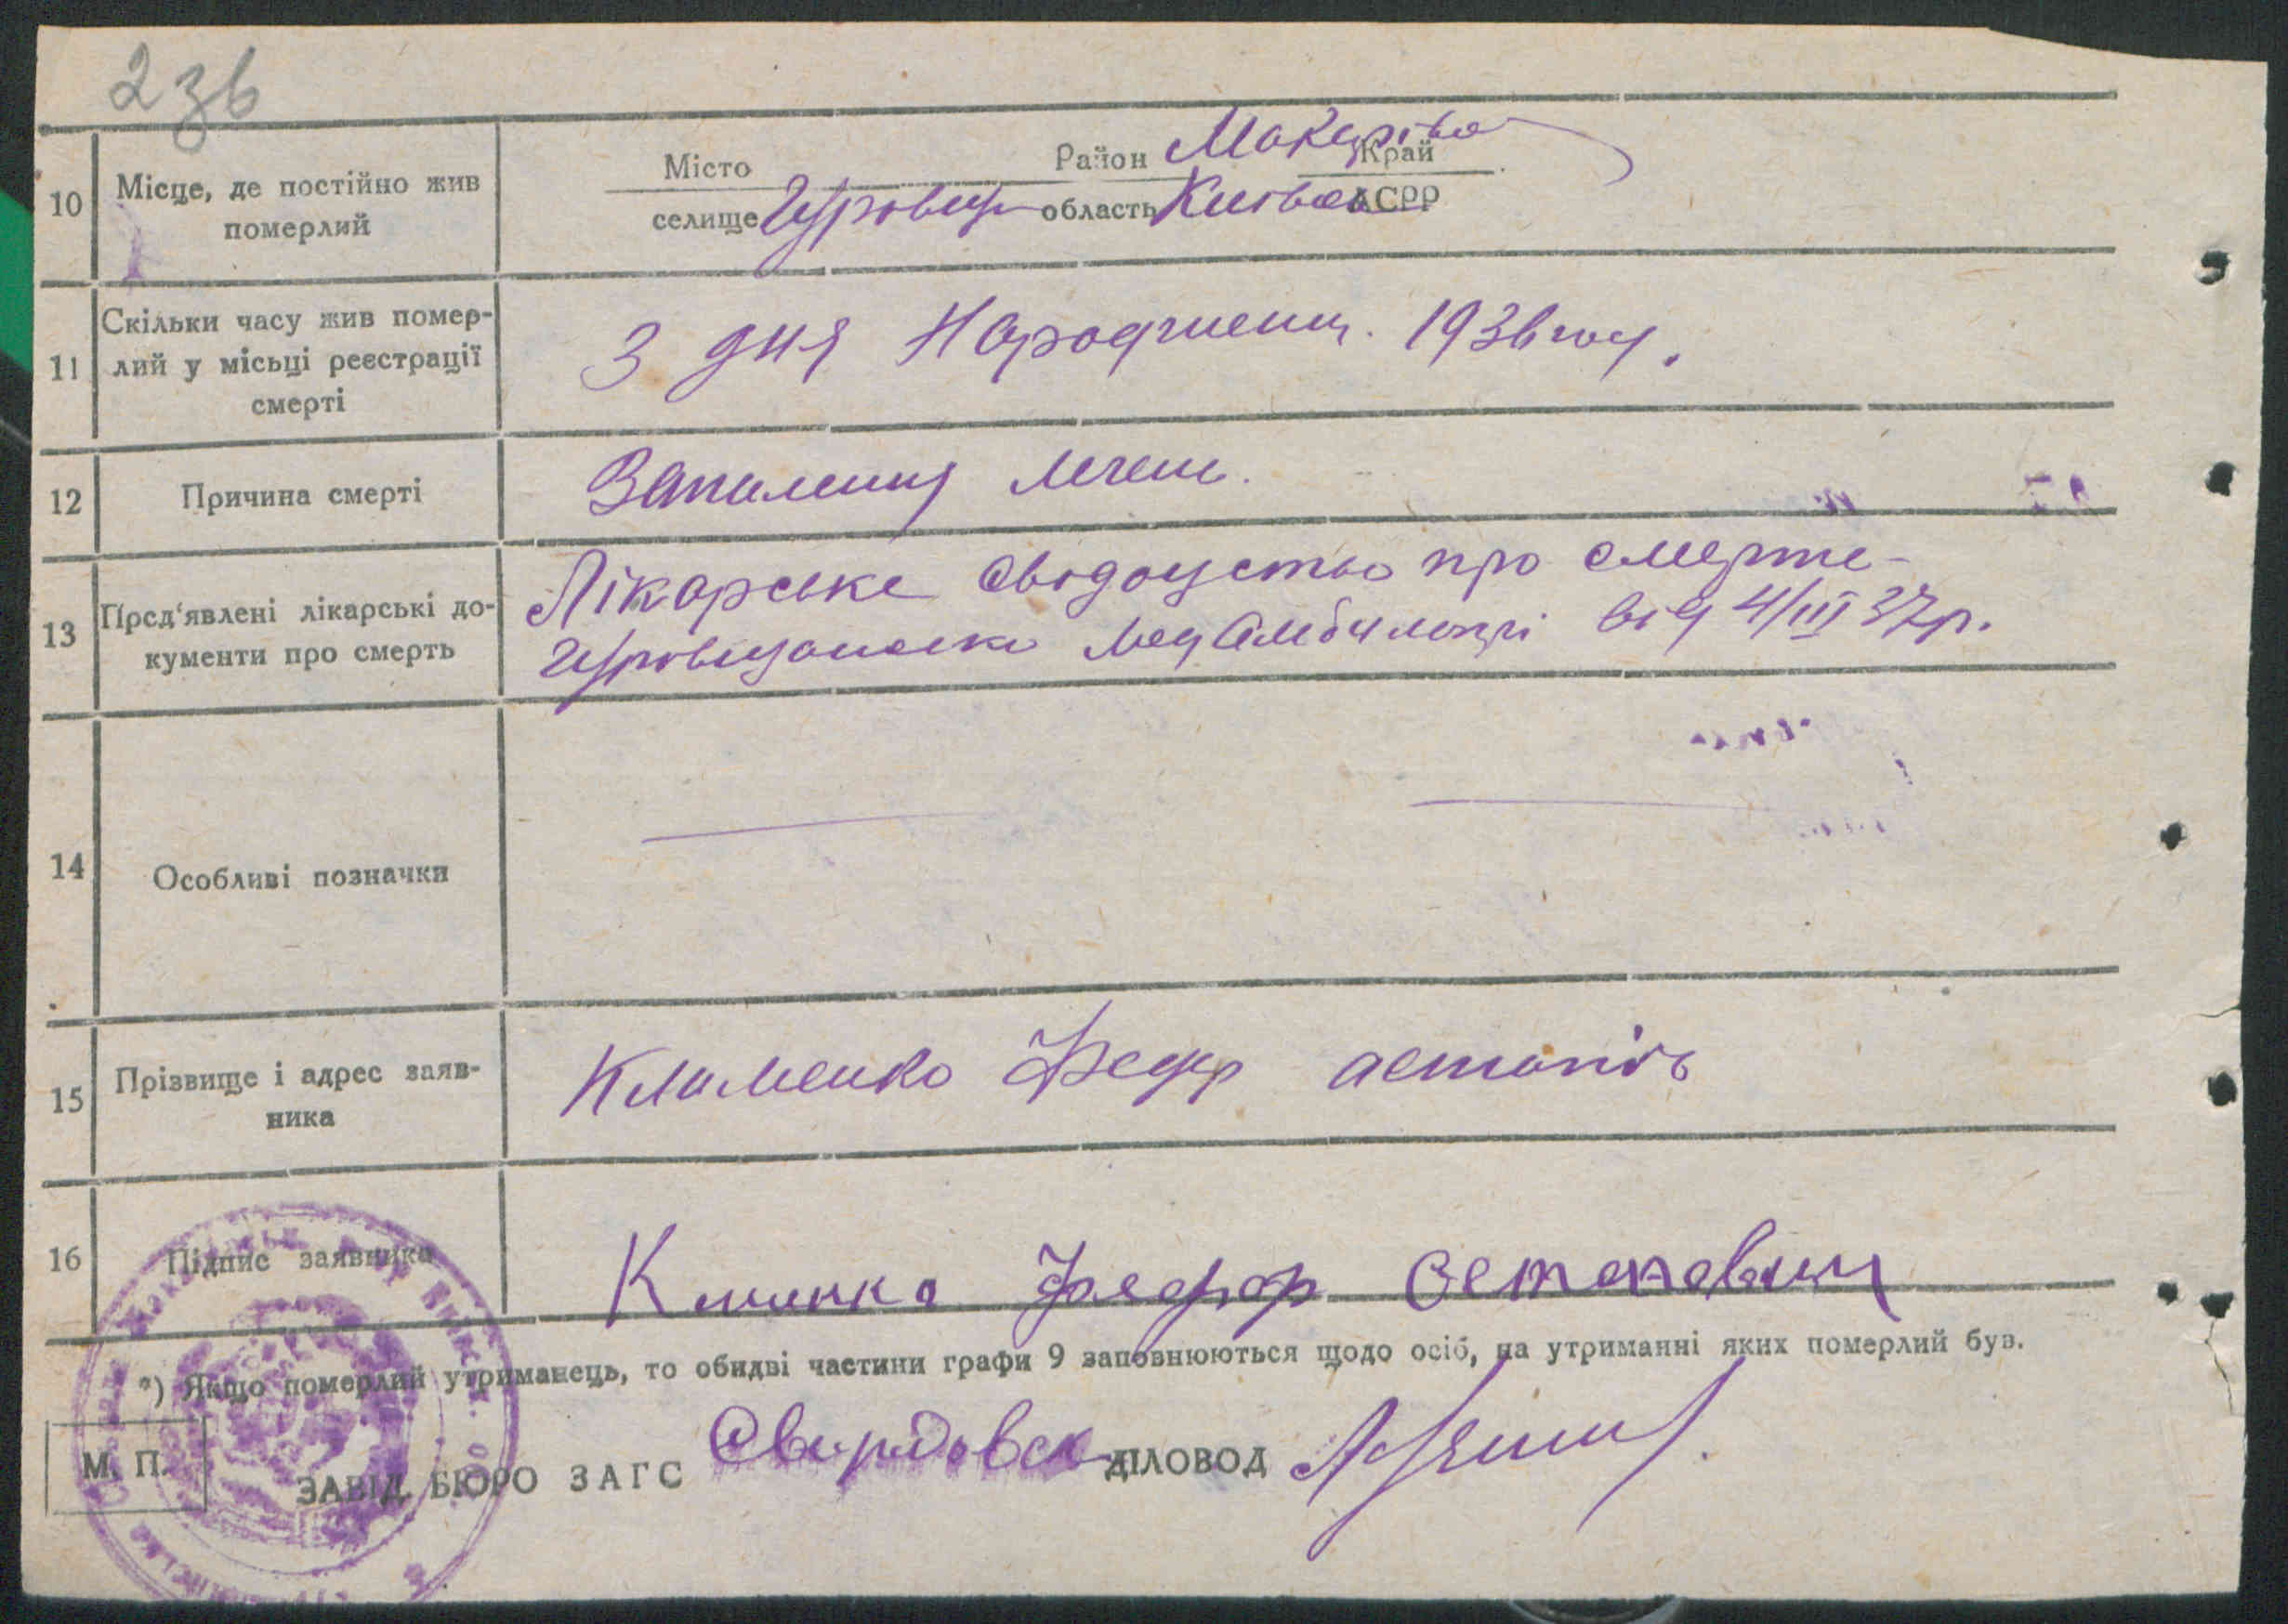 2зв
10 Місце, де постійно жив померлий
Місто Район Макарівс Край
селище область Київськ АСРР
11 Скільки часу жив помер-
лий у місьці реєстрації
смерті
З дня Народженн. 1936 году.
12 Причина смерті
Запалення легень.
13 Пред'явлені лікарські до-
кументи про смерть
Лікарське свідоцтво про смерть
від 4/III 37р.
14 Особливі позначки
15 Прізвище і адрес заяв-
ника
Клименко Федір Остапів
16 Підпис заявника
Остапович
*) Якщо померлий утриманець, то обидві частини графи 9 заповнюються щодо осіб, на утриманні яких померлий був.
М. П.
ЗАВІД. БЮРО ЗАГС ДІЛОВОД